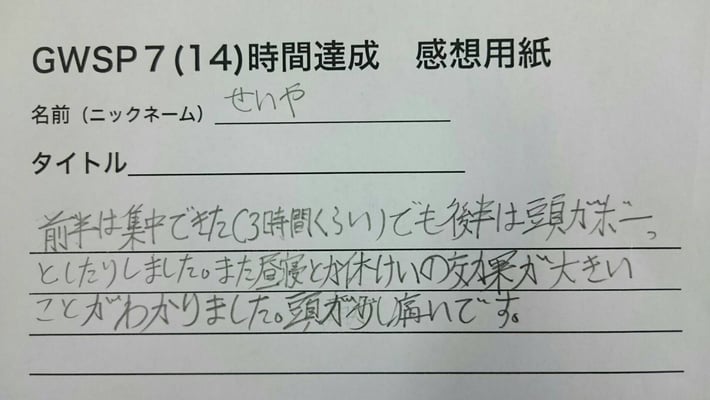 GWSP7(14)時間達成 感想用紙
名前(ニックネーム) せいや
タイトル
前半は集中できた(3時間くらい)でも後半は頭がボーっ
としたりしました。また昼寝とか休けいの効果が大きい
ことがわかりました。頭が少し痛いです。